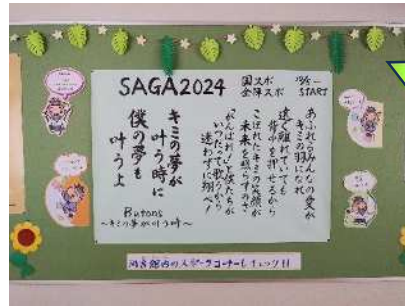 SAGA2024
国スポ
全障スポ
10/5〜
START
あふれるみんなの愛が
キミの羽になれ
遠く離れていても
背中を押せるから
こぼれたキミの笑顔が
未来を照らすのさ
「がんばれ!」と僕たちが
いつだって歌うから
迷わずに翔べ!
キミの夢が
叶う時に
僕の夢も
叶うよ
Butons
〜キミの夢が叶う時〜
図書館内のスポーツコーナーもチェック!!